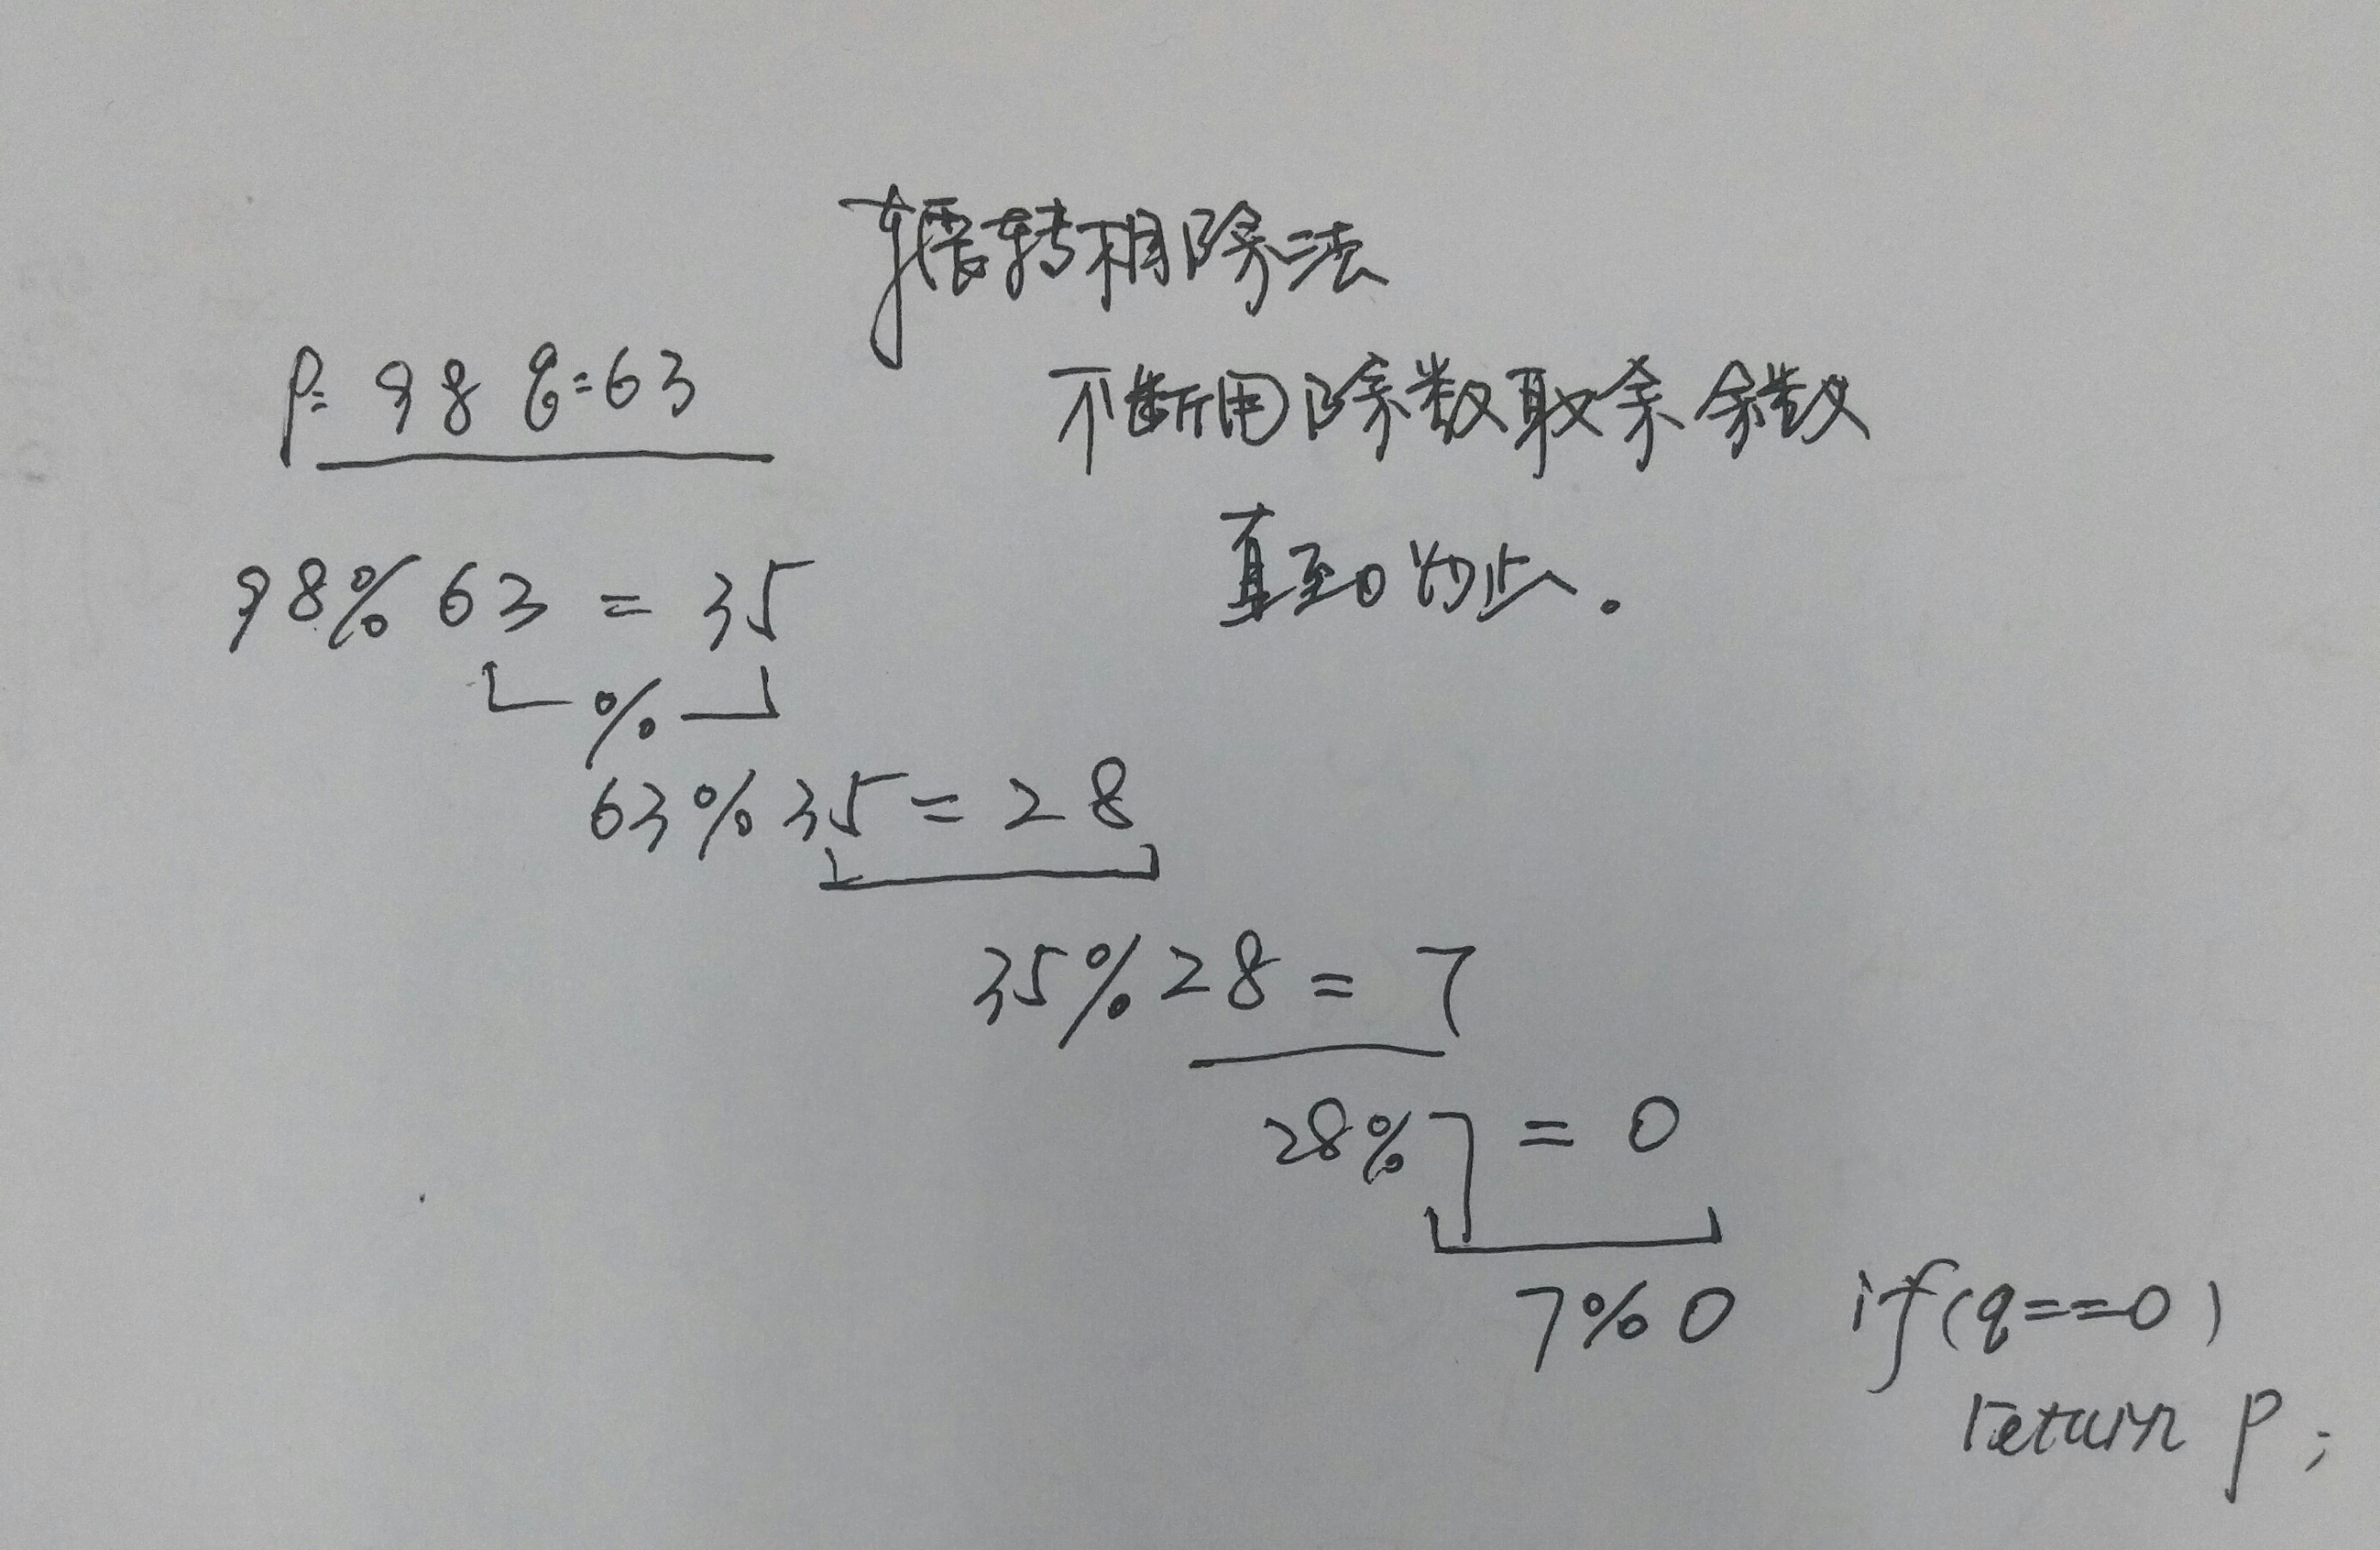 辗转相除法
p=98 q=63
不断用除数取余余数
直至0为止。
98%63=35
%
63%35=28
35%28=7
28%7=0
7%0 if(q==0)
return p;